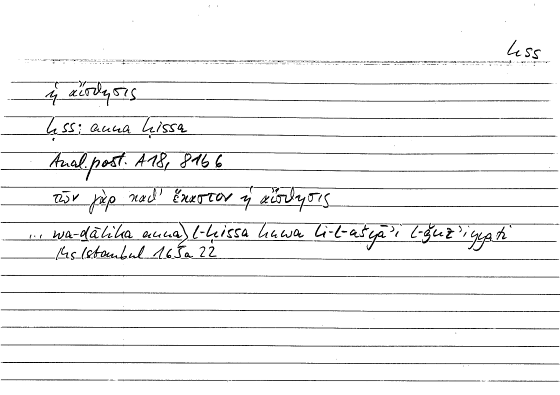 ḥss
ἡ αἴσθησις
ḥss: anna ḥissa
Anal. post. A18, 81b6
τῶν γὰρ καθ' ἕκαστον ἡ αἴσθησις
... wa-ḏālika anna⟩ l-ḥissa huwa li-l-ašyāʾi l-ǧuzʾiyyati
Ms Istanbul 165a 22